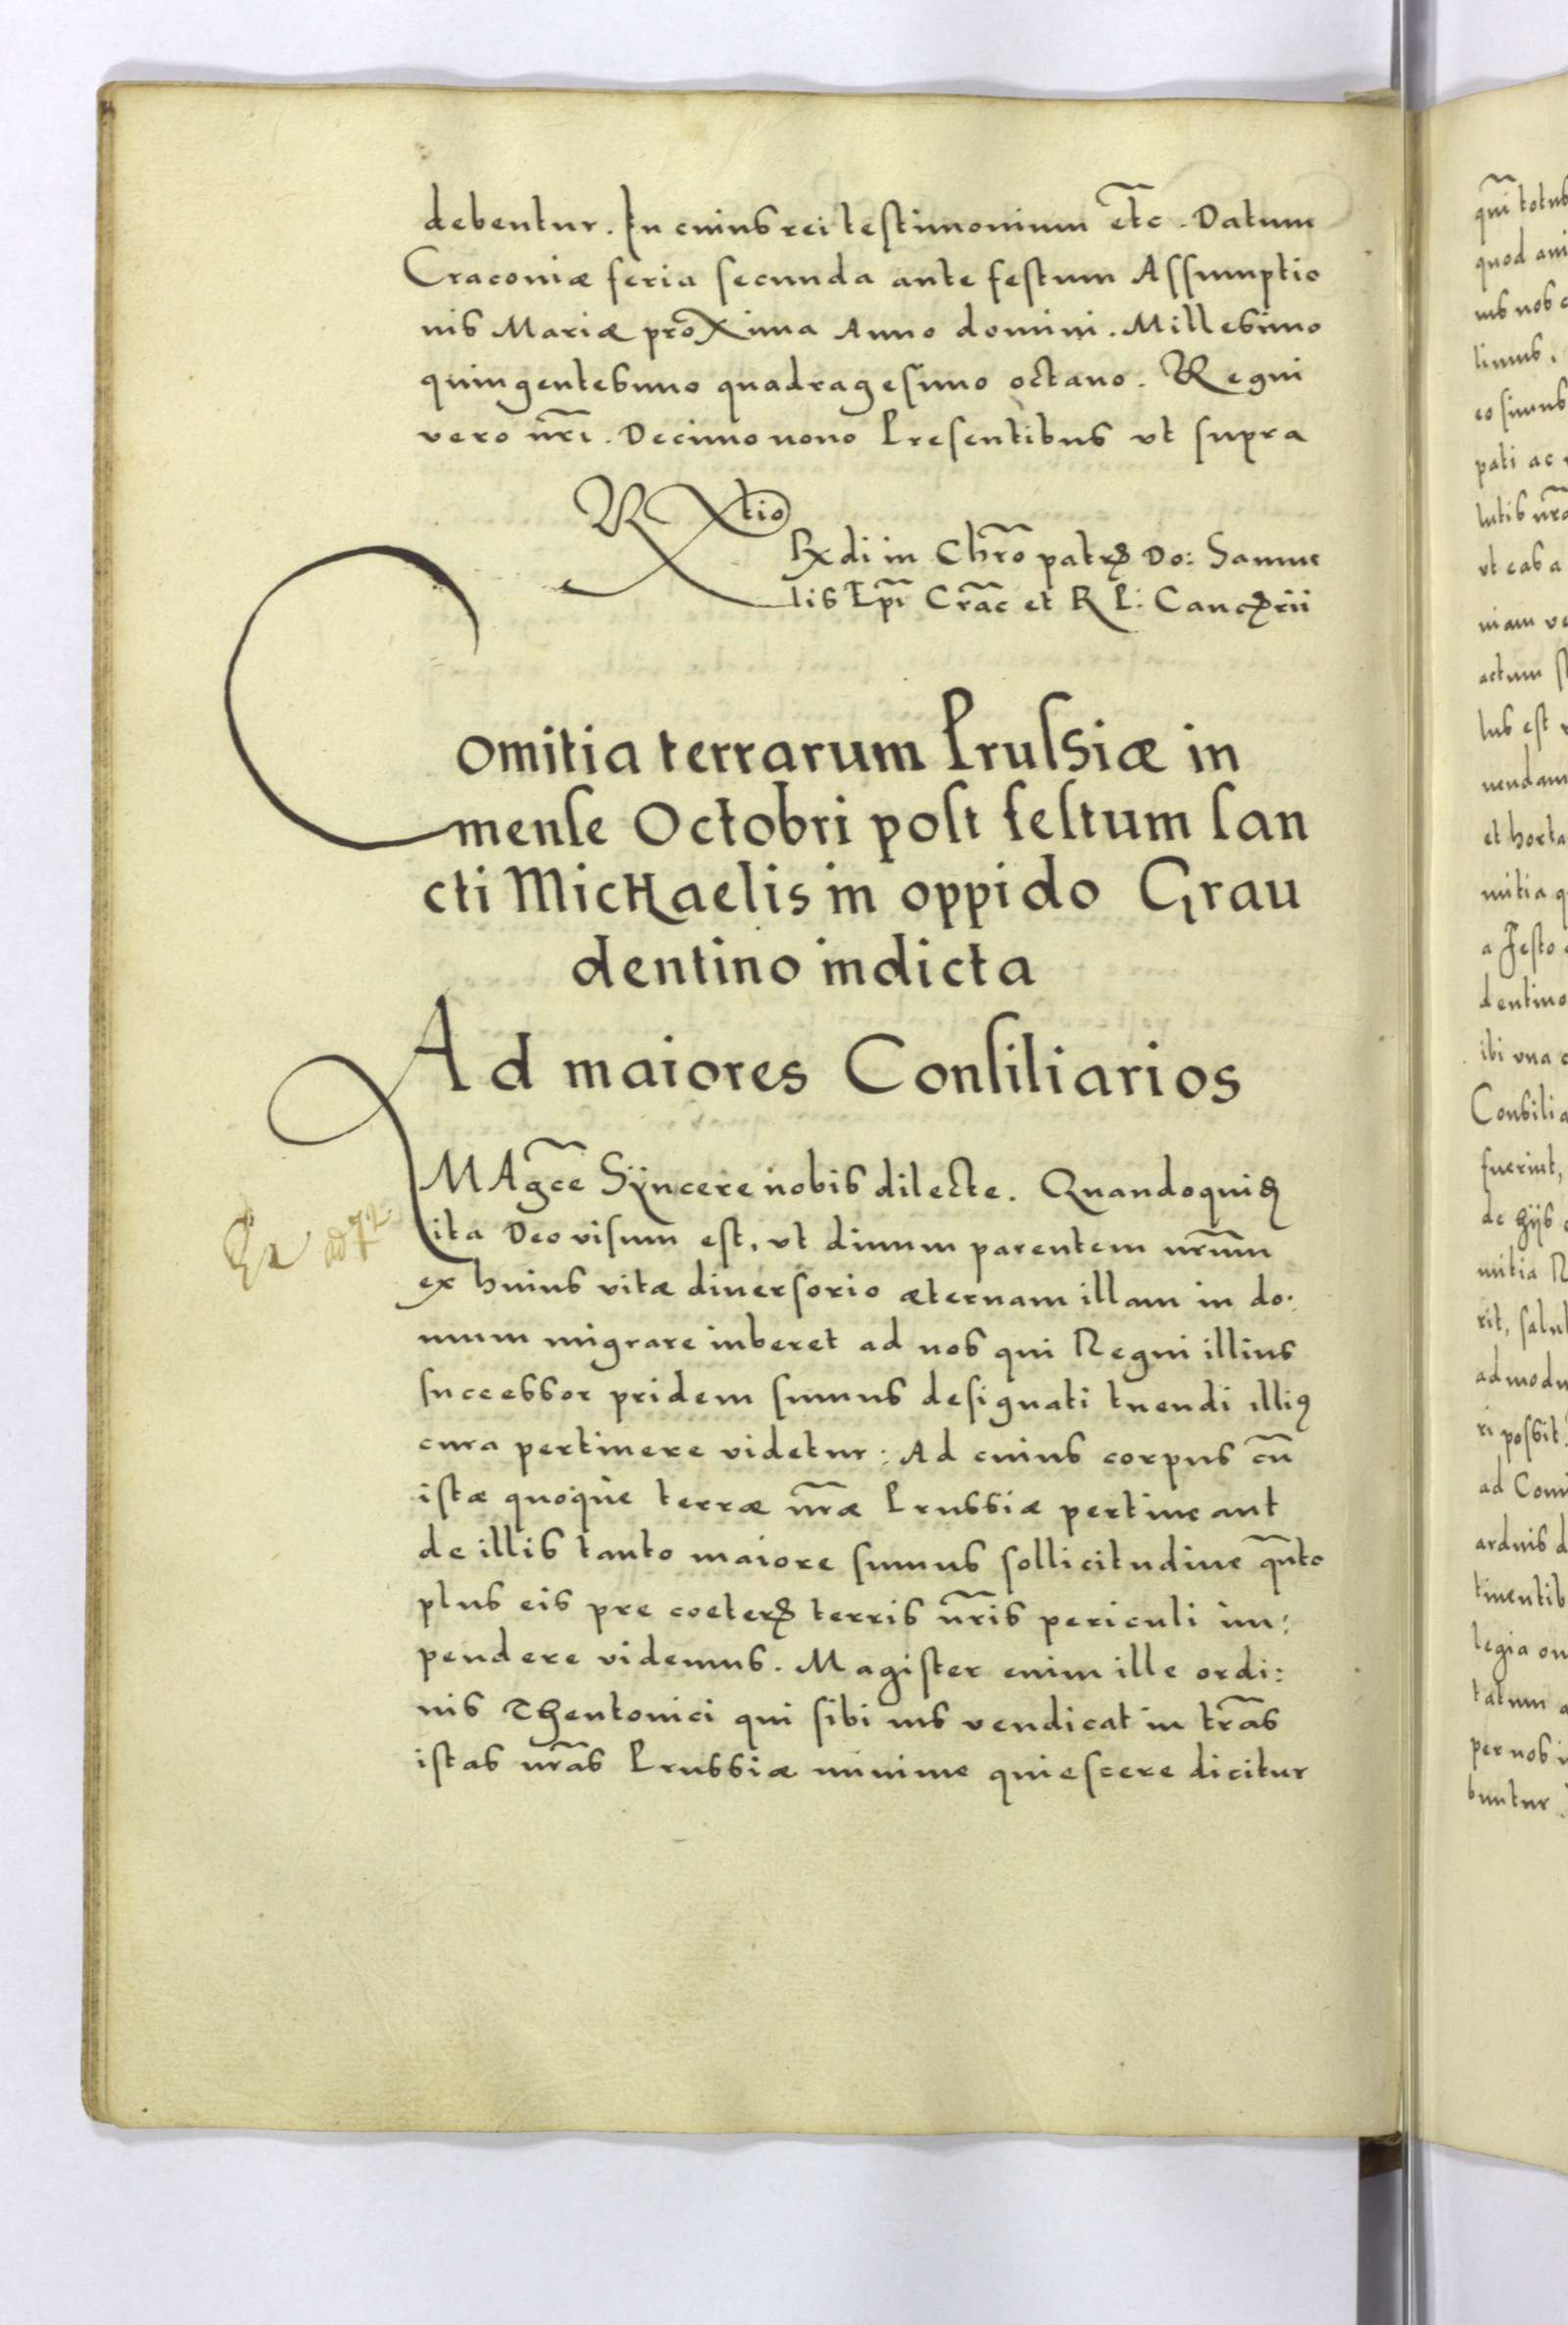 debentur. In cuius rei testimonium etc. Datum
Cracoviæ feria secunda ante festum Assumptio
nis Mariæ proxima Anno domini. Millesimo
quingentesimo quadragesimo octavo. Regni
vero nr̃i. Decimo nono Presentibus ut supra
Rtio
Rdi in Chr̃o patrꝭ Do: Samue
lis Ep̃i Cr̃ac et R P: Cancꝭrii
Comitia terrarum Prussiæ in
mense Octobri post festum san
cti Michaelis in oppido Grau
dentino indicta
Ad maiores Consiliarios
MAgc̃e Sÿncere nobis dilecte. Quandoquiꝫ
ita Deo visum est, ut divum parentem nr̃um
ex huius vitæ diversorio æternam illam in do:
mum migrare iuberet ad nos qui Regni illius
successor pridem sumus designati tuendi illiꝰ
cura pertinere videtur: Ad cuius corpus cũ
istæ quoque terræ nr̃æ Prussiæ pertineant
de illis tanto maiore sumus sollicitudine qũto
plus eis pre coeterꝭ terris nr̃is periculi im:
pendere videmus. Magister enim ille ordi:
nis Theutonici qui sibi ius vendicat in tr̃as
istas nr̃as Prussiæ minime quiescere dicitur
ad 72
qm̃ totus
quod ani
ius nos
limus.
eo simus
pati ac
lutis nr̃a
ut eas a
niam ve
actum
lus est
uendam
et horta
mitia q
a Festo
dentino
ibi una c
Consilia
fuerint,
de hijs
mitia R
rit, salu
admodu
ri possit
ad Comi
arduis d
tinentib
legia om
tatum a
per nos i
buntur